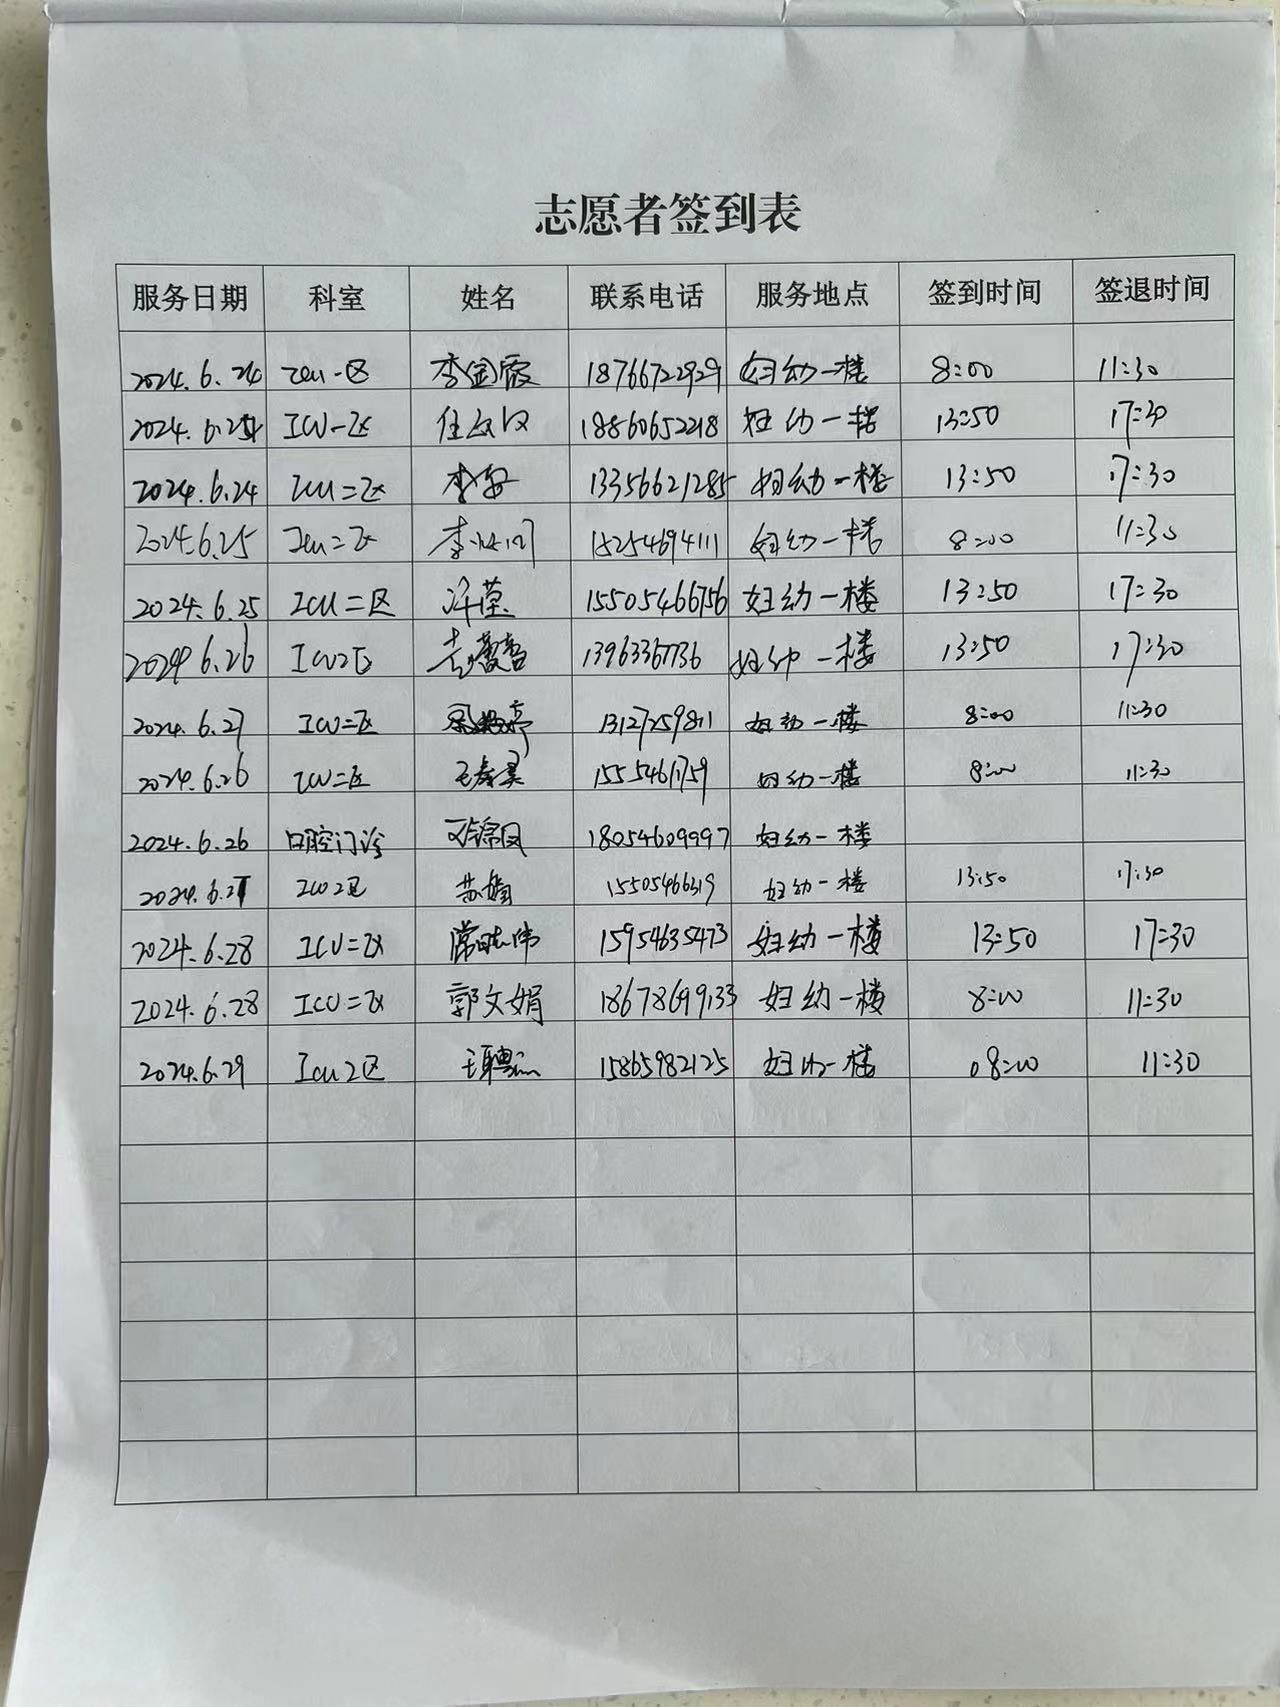 志愿者签到表
服务日期 科室 姓名 联系电话 服务地点 签到时间 签退时间
2024.6.24 ICU一区 李金霞 18766722929 妇幼一楼 8:00 11:30
2024.6.24 ICU一区 18860652218 妇幼一楼 13:50 17:30
2024.6.24 ICU二区 13356621285 妇幼一楼 13:50 17:30
2024.6.25 ICU二区 15254694111 妇幼一楼 8:00 11:30
2024.6.25 ICU二区 许莹 15505466756 妇幼一楼 13:50 17:30
2024.6.26 ICU2区 13963367736 妇幼一楼 13:50 17:30
2024.6.27 ICU二区 13127259811 妇幼一楼 8:00 11:30
2024.6.26 ICU二区 15554611759 妇幼一楼 8:00 11:30
2024.6.26 口腔门诊 18054609997 妇幼一楼
2024.6.27 ICU2区 苏娟 15505466319 妇幼一楼 13:50 17:30
2024.6.28 ICU二区 常晓伟 15954635473 妇幼一楼 13:50 17:30
2024.6.28 ICU二区 郭文娟 18678699133 妇幼一楼 8:00 11:30
2024.6.29 ICU2区 15865982125 妇幼一楼 08:00 11:30